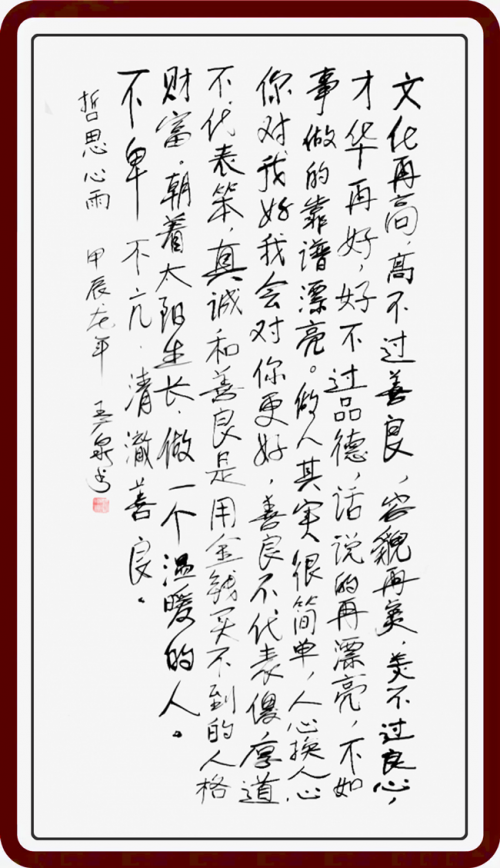 文化再高，高不过善良，容貌再美，美不过良心，
才华再好，好不过品德，话说的再漂亮，不如
事做的靠谱漂亮。做人其实很简单，人心换人心
你对我好我会对你更好，善良不代表傻，厚道
不代表笨，真诚和善良是用金钱买不到的人格
财富，朝着太阳生长，做一个温暖的人。
不卑不亢，清澈善良。
哲思心雨 甲辰龙年